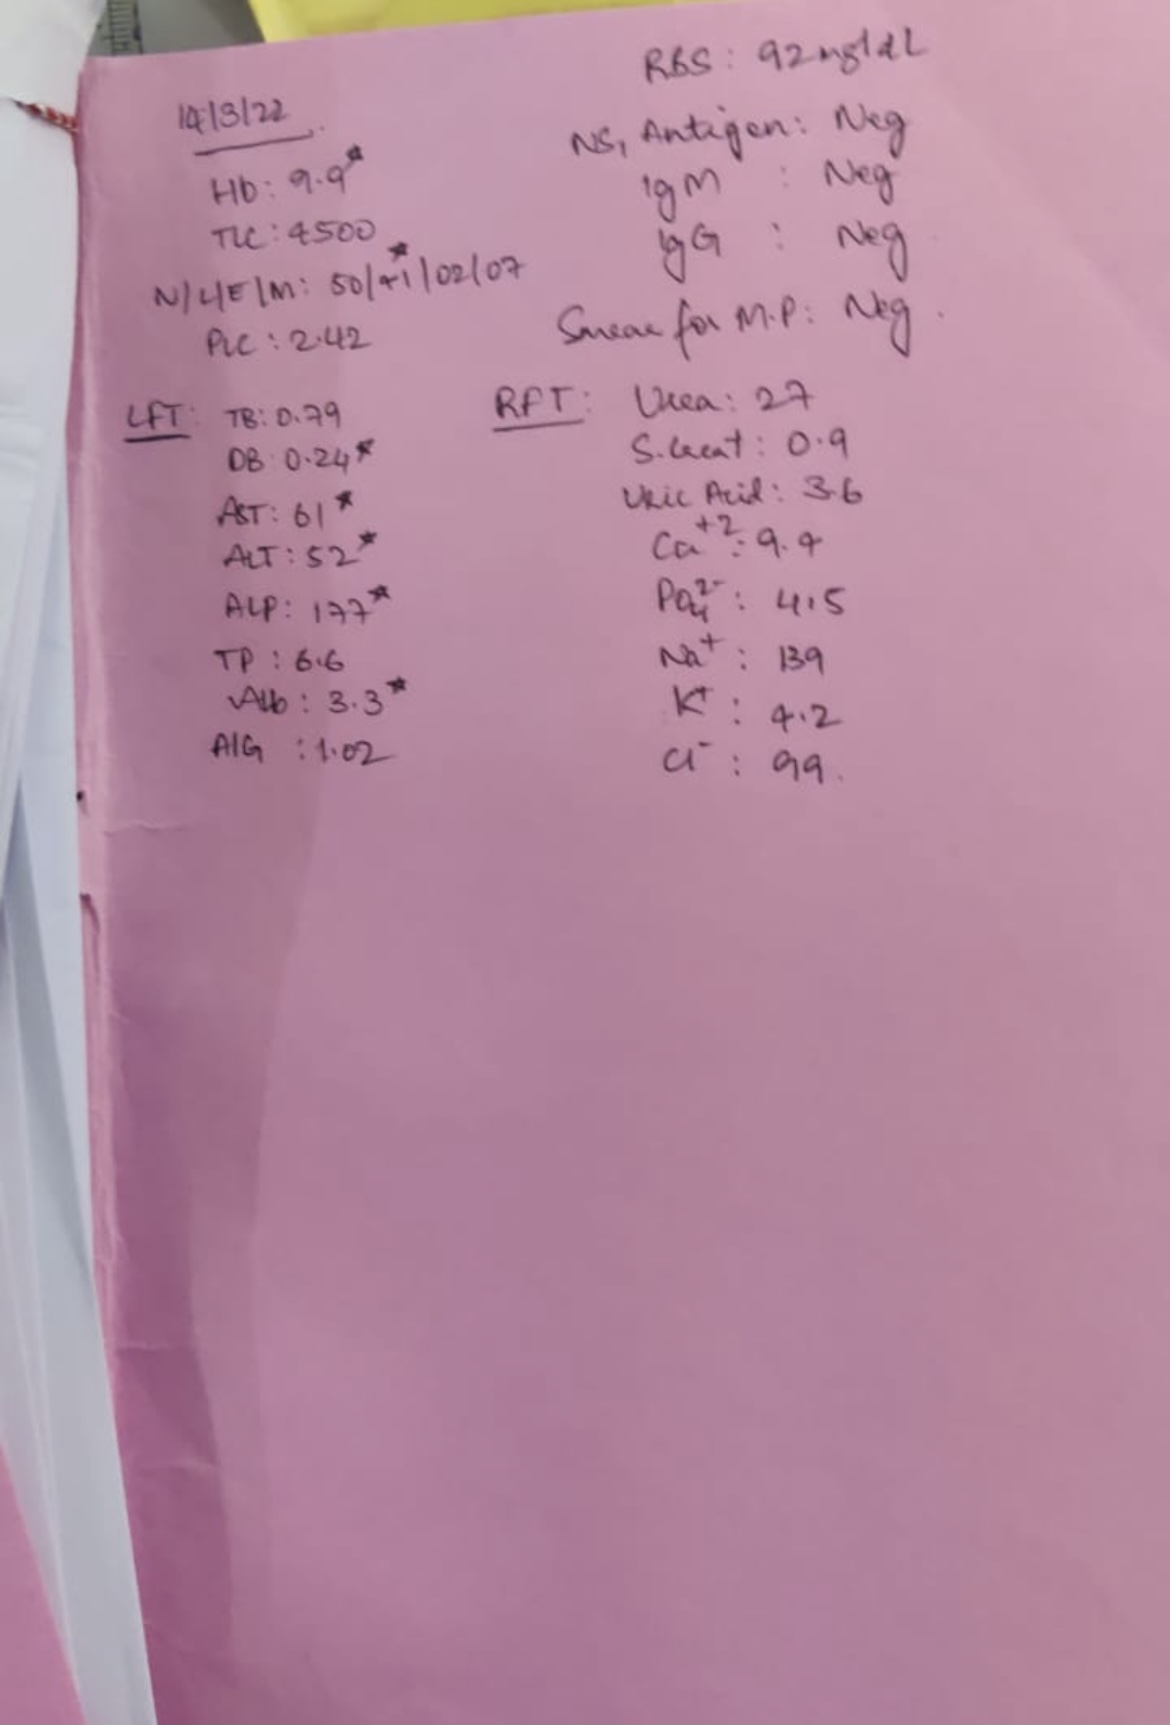 14/3/22
Hb: 9.9*
TLC: 4500
N/L/E/M: 50/41*/02/07
PLC: 2.42
RBS: 92mg/dL
NS1 Antigen: Neg
IgM : Neg
IgG : Neg
Smear for M.P: Neg.
LFT: TB: 0.79
DB: 0.24*
AST: 61*
ALT: 52*
ALP: 177*
TP: 6.6
Alb: 3.3*
A/G: 1.02
RFT: Urea: 27
S.Creat: 0.9
Uric Acid: 3.6
Ca+2: 9.4
PO4 2-: 4.5
Na+: 139
K+: 4.2
Cl-: 99.